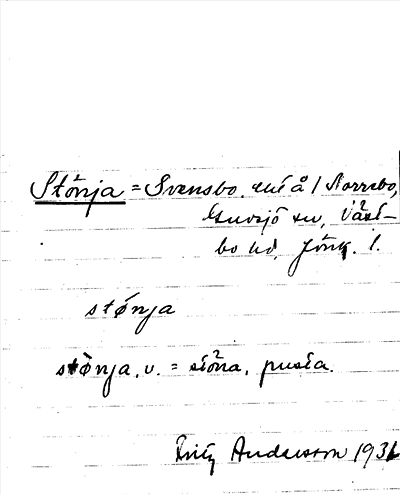 Stönja = Svensbo, enl å / Norrebo,
Gnosjö sn, Väst-
bo hd, Jönk. l.
stǿnja
stønja, v. = stöna, pusta.
Fritz Andersson 1931